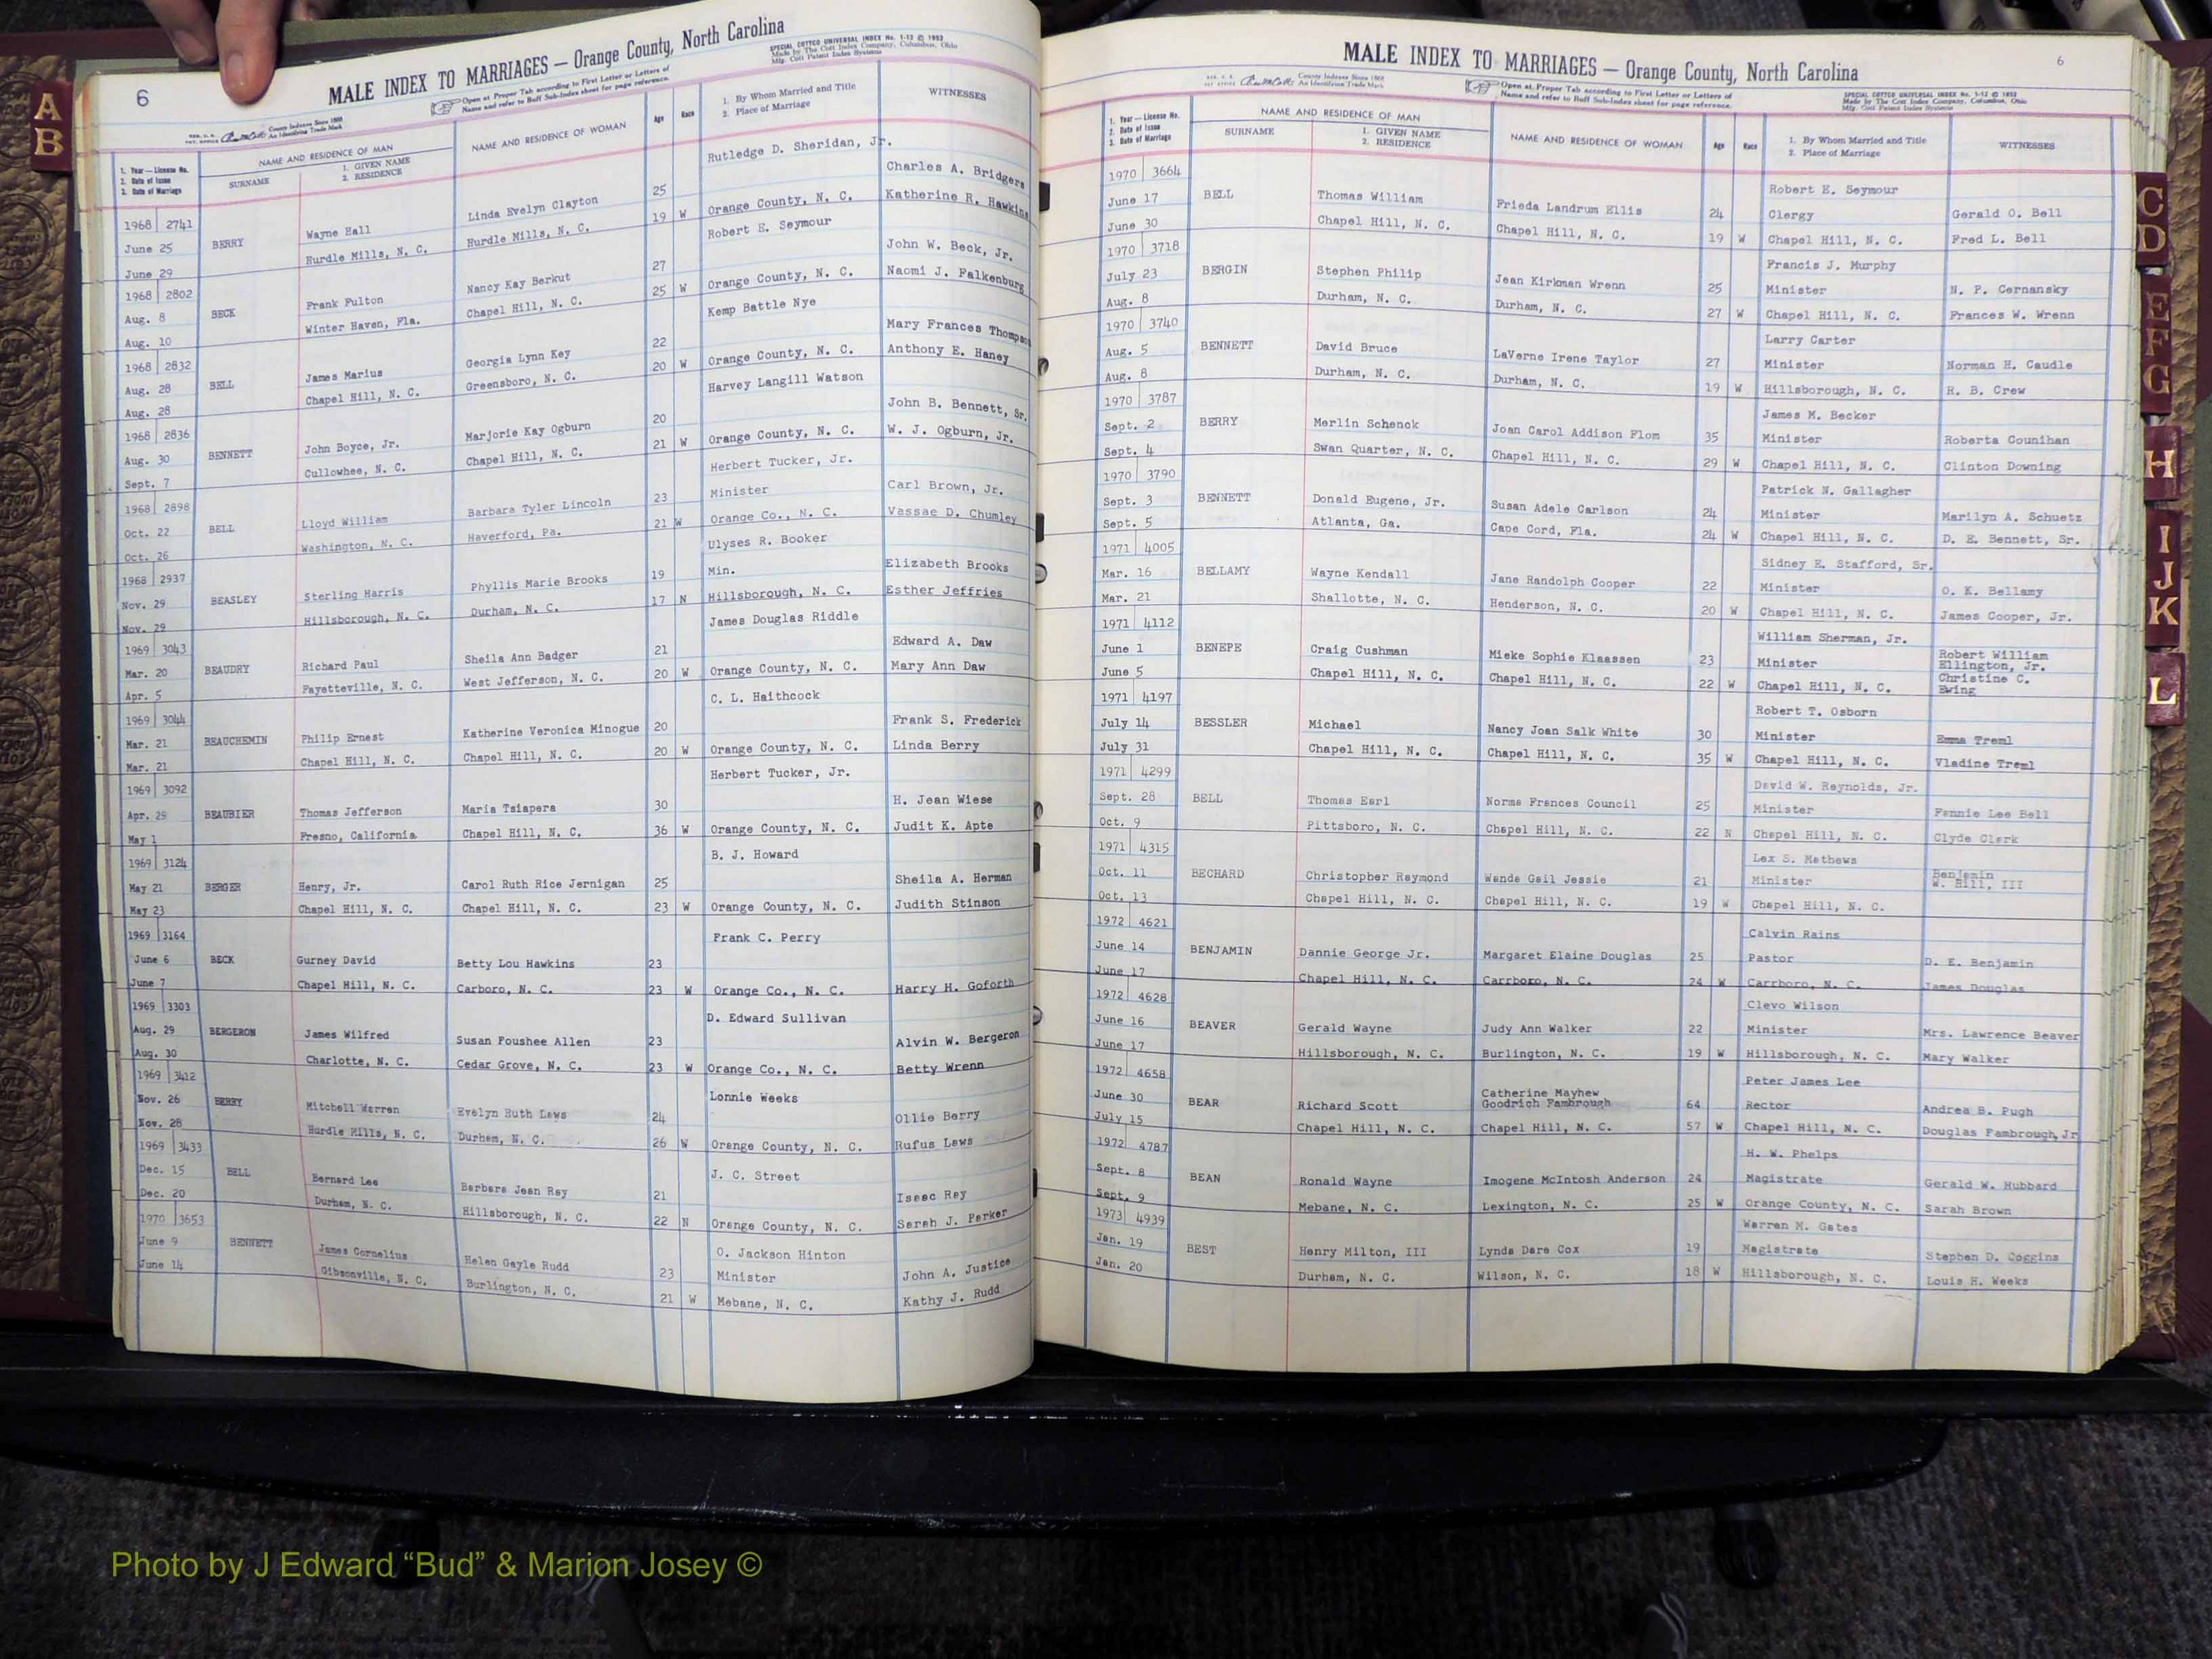 A
B
6
MALE INDEX TO MARRIAGES — Orange County, North Carolina
Open at Proper Tab according to First Letter or Letters of
Name and refer to Buff Sub-Index sheet for page reference.
SPECIAL COTTCO UNIVERSAL INDEX No. 1-12 © 1952
Made by The Cott Index Company, Columbus, Ohio
Mfg. Cott Patent Index Systems
County Indexes Since 1888
An Identifying Trade Mark
1. Year — License No.
2. Date of Issue
3. Date of Marriage
NAME AND RESIDENCE OF MAN
SURNAME
1. GIVEN NAME
2. RESIDENCE
NAME AND RESIDENCE OF WOMAN
Age
Race
1. By Whom Married and Title
2. Place of Marriage
WITNESSES
Rutledge D. Sheridan, Jr.
1968 2741 Linda Evelyn Clayton 25 Charles A. Bridgers
June 25 BERRY Wayne Hall Hurdle Mills, N. C. 19 W Orange County, N. C. Katherine R. Hawkins
June 29 Hurdle Mills, N. C.
Robert E. Seymour
1968 2802 Nancy Kay Berkut 27 John W. Beck, Jr.
Aug. 8 BECK Frank Fulton Chapel Hill, N. C. 25 W Orange County, N. C. Naomi J. Falkenburg
Aug. 10 Winter Haven, Fla.
Kemp Battle Nye
1968 2832 Georgia Lynn Key 22 Mary Frances Thompson
Aug. 28 BELL James Marius Greensboro, N. C. 20 W Orange County, N. C. Anthony E. Haney
Aug. 28 Chapel Hill, N. C.
Harvey Langill Watson
1968 2836 Marjorie Kay Ogburn 20 John B. Bennett, Sr.
Aug. 30 BENNETT John Boyce, Jr. Chapel Hill, N. C. 21 W Orange County, N. C. W. J. Ogburn, Jr.
Sept. 7 Cullowhee, N. C.
Herbert Tucker, Jr.
1968 2898 Barbara Tyler Lincoln 23 Minister Carl Brown, Jr.
Oct. 22 BELL Lloyd William Haverford, Pa. 21 W Orange Co., N. C. Vassae D. Chumley
Oct. 26 Washington, N. C.
Ulyses R. Booker
1968 2937 Phyllis Marie Brooks 19 Min. Elizabeth Brooks
Nov. 29 BEASLEY Sterling Harris Durham, N. C. 17 N Hillsborough, N. C. Esther Jeffries
Nov. 29 Hillsborough, N. C.
James Douglas Riddle
1969 3043 Sheila Ann Badger 21 Edward A. Daw
Mar. 20 BEAUDRY Richard Paul West Jefferson, N. C. 20 W Orange County, N. C. Mary Ann Daw
Apr. 5 Fayetteville, N. C.
C. L. Haithcock
1969 3044 Katherine Veronica Minogue 20 Frank S. Frederick
Mar. 21 BEAUCHEMIN Philip Ernest Chapel Hill, N. C. 20 W Orange County, N. C. Linda Berry
Mar. 21 Chapel Hill, N. C.
Herbert Tucker, Jr.
1969 3092 Maria Tsiapera 30 H. Jean Wiese
Apr. 29 BEAUBIER Thomas Jefferson Chapel Hill, N. C. 36 W Orange County, N. C. Judit K. Apte
May 1 Fresno, California
B. J. Howard
1969 3124 Carol Ruth Rice Jernigan 25 Sheila A. Herman
May 21 BERGER Henry, Jr. Chapel Hill, N. C. 23 W Orange County, N. C. Judith Stinson
May 23 Chapel Hill, N. C.
1969 3164 Frank C. Perry
June 6 BECK Gurney David Betty Lou Hawkins 23
June 7 Chapel Hill, N. C. Carboro, N. C. 23 W Orange Co., N. C. Harry H. Goforth
1969 3303 D. Edward Sullivan
Aug. 29 BERGERON James Wilfred Susan Foushee Allen 23 Alvin W. Bergeron
Aug. 30 Charlotte, N. C. Cedar Grove, N. C. 23 W Orange Co., N. C. Betty Wrenn
1969 3412 Lonnie Weeks
Nov. 26 BERRY Mitchell Warren Evelyn Ruth Laws 24 Ollie Berry
Nov. 28 Hurdle Mills, N. C. Durham, N. C. 26 W Orange County, N. C. Rufus Laws
1969 3433 J. C. Street
Dec. 15 BELL Bernard Lee Barbara Jean Ray 21 Isaac Ray
Dec. 20 Durham, N. C. Hillsborough, N. C. 22 N Orange County, N. C. Sarah J. Parker
1970 3653 O. Jackson Hinton
June 9 BENNETT James Cornelius Helen Gayle Rudd 23 Minister John A. Justice
June 14 Gibsonville, N. C. Burlington, N. C. 21 W Mebane, N. C. Kathy J. Rudd
6
MALE INDEX TO MARRIAGES — Orange County, North Carolina
County Indexes Since 1888
An Identifying Trade Mark
Open at Proper Tab according to First Letter or Letters of
Name and refer to Buff Sub-Index sheet for page reference.
SPECIAL COTTCO UNIVERSAL INDEX No. 1-12 © 1952
Made by The Cott Index Company, Columbus, Ohio
Mfg. Cott Patent Index Systems
1. Year — License No.
2. Date of Issue
3. Date of Marriage
NAME AND RESIDENCE OF MAN
SURNAME
1. GIVEN NAME
2. RESIDENCE
NAME AND RESIDENCE OF WOMAN
Age
Race
1. By Whom Married and Title
2. Place of Marriage
WITNESSES
1970 3664 Robert E. Seymour
June 17 BELL Thomas William Frieda Landrum Ellis 24 Clergy Gerald O. Bell
June 30 Chapel Hill, N. C. Chapel Hill, N. C. 19 W Chapel Hill, N. C. Fred L. Bell
1970 3718 Francis J. Murphy
July 23 BERGIN Stephen Philip Jean Kirkman Wrenn 25 Minister N. P. Cernansky
Aug. 8 Durham, N. C. Durham, N. C. 27 W Chapel Hill, N. C. Frances W. Wrenn
1970 3740 Larry Carter
Aug. 5 BENNETT David Bruce LaVerne Irene Taylor 27 Minister Norman H. Caudle
Aug. 8 Durham, N. C. Durham, N. C. 19 W Hillsborough, N. C. R. B. Crew
1970 3787 James M. Becker
Sept. 2 BERRY Merlin Schenck Joan Carol Addison Flom 35 Minister Roberta Counihan
Sept. 4 Swan Quarter, N. C. Chapel Hill, N. C. 29 W Chapel Hill, N. C. Clinton Downing
1970 3790 Patrick N. Gallagher
Sept. 3 BENNETT Donald Eugene, Jr. Susan Adele Carlson 24 Minister Marilyn A. Schuetz
Sept. 5 Atlanta, Ga. Cape Cord, Fla. 24 W Chapel Hill, N. C. D. E. Bennett, Sr.
1971 4005 Sidney E. Stafford, Sr.
Mar. 16 BELLAMY Wayne Kendall Jane Randolph Cooper 22 Minister O. K. Bellamy
Mar. 21 Shallotte, N. C. Henderson, N. C. 20 W Chapel Hill, N. C. James Cooper, Jr.
1971 4112 William Sherman, Jr.
June 1 BENEPE Craig Cushman Mieke Sophie Klaassen 23 Minister Robert William Ellington, Jr.
June 5 Chapel Hill, N. C. Chapel Hill, N. C. 22 W Chapel Hill, N. C. Christine C. Ewing
1971 4197 Robert T. Osborn
July 14 BESSLER Michael Nancy Joan Salk White 30 Minister Emma Treml
July 31 Chapel Hill, N. C. Chapel Hill, N. C. 35 W Chapel Hill, N. C. Vladine Treml
1971 4299 David W. Reynolds, Jr.
Sept. 28 BELL Thomas Earl Norma Frances Council 25 Minister Fannie Lee Bell
Oct. 9 Pittsboro, N. C. Chapel Hill, N. C. 22 N Chapel Hill, N. C. Clyde Clark
1971 4315 Lex S. Mathews
Oct. 11 BECHARD Christopher Raymond Wanda Gail Jessie 21 Minister Benjamin W. Hill, III
Oct. 13 Chapel Hill, N. C. Chapel Hill, N. C. 19 W Chapel Hill, N. C.
1972 4621 Calvin Rains
June 14 BENJAMIN Dannie George Jr. Margaret Elaine Douglas 25 Pastor D. E. Benjamin
June 17 Chapel Hill, N. C. Carrboro, N. C. 24 W Carrboro, N. C. James Douglas
1972 4628 Clevo Wilson
June 16 BEAVER Gerald Wayne Judy Ann Walker 22 Minister Mrs. Lawrence Beaver
June 17 Hillsborough, N. C. Burlington, N. C. 19 W Hillsborough, N. C. Mary Walker
1972 4658 Peter James Lee
June 30 BEAR Richard Scott Catherine Mayhew Goodrich Fambrough 64 Rector Andrea B. Pugh
July 15 Chapel Hill, N. C. Chapel Hill, N. C. 57 W Chapel Hill, N. C. Douglas Fambrough, Jr
1972 4787 H. W. Phelps
Sept. 8 BEAN Ronald Wayne Imogene McIntosh Anderson 24 Magistrate Gerald W. Hubbard
Sept. 9 Mebane, N. C. Lexington, N. C. 25 W Orange County, N. C. Sarah Brown
1973 4939 Warren M. Gates
Jan. 19 BEST Henry Milton, III Lynda Dare Cox 19 Magistrate Stephen D. Coggins
Jan. 20 Durham, N. C. Wilson, N. C. 18 W Hillsborough, N. C. Louis H. Weeks
C
D
E
F
G
H
I
J
K
L
Photo by J Edward “Bud” & Marion Josey ©